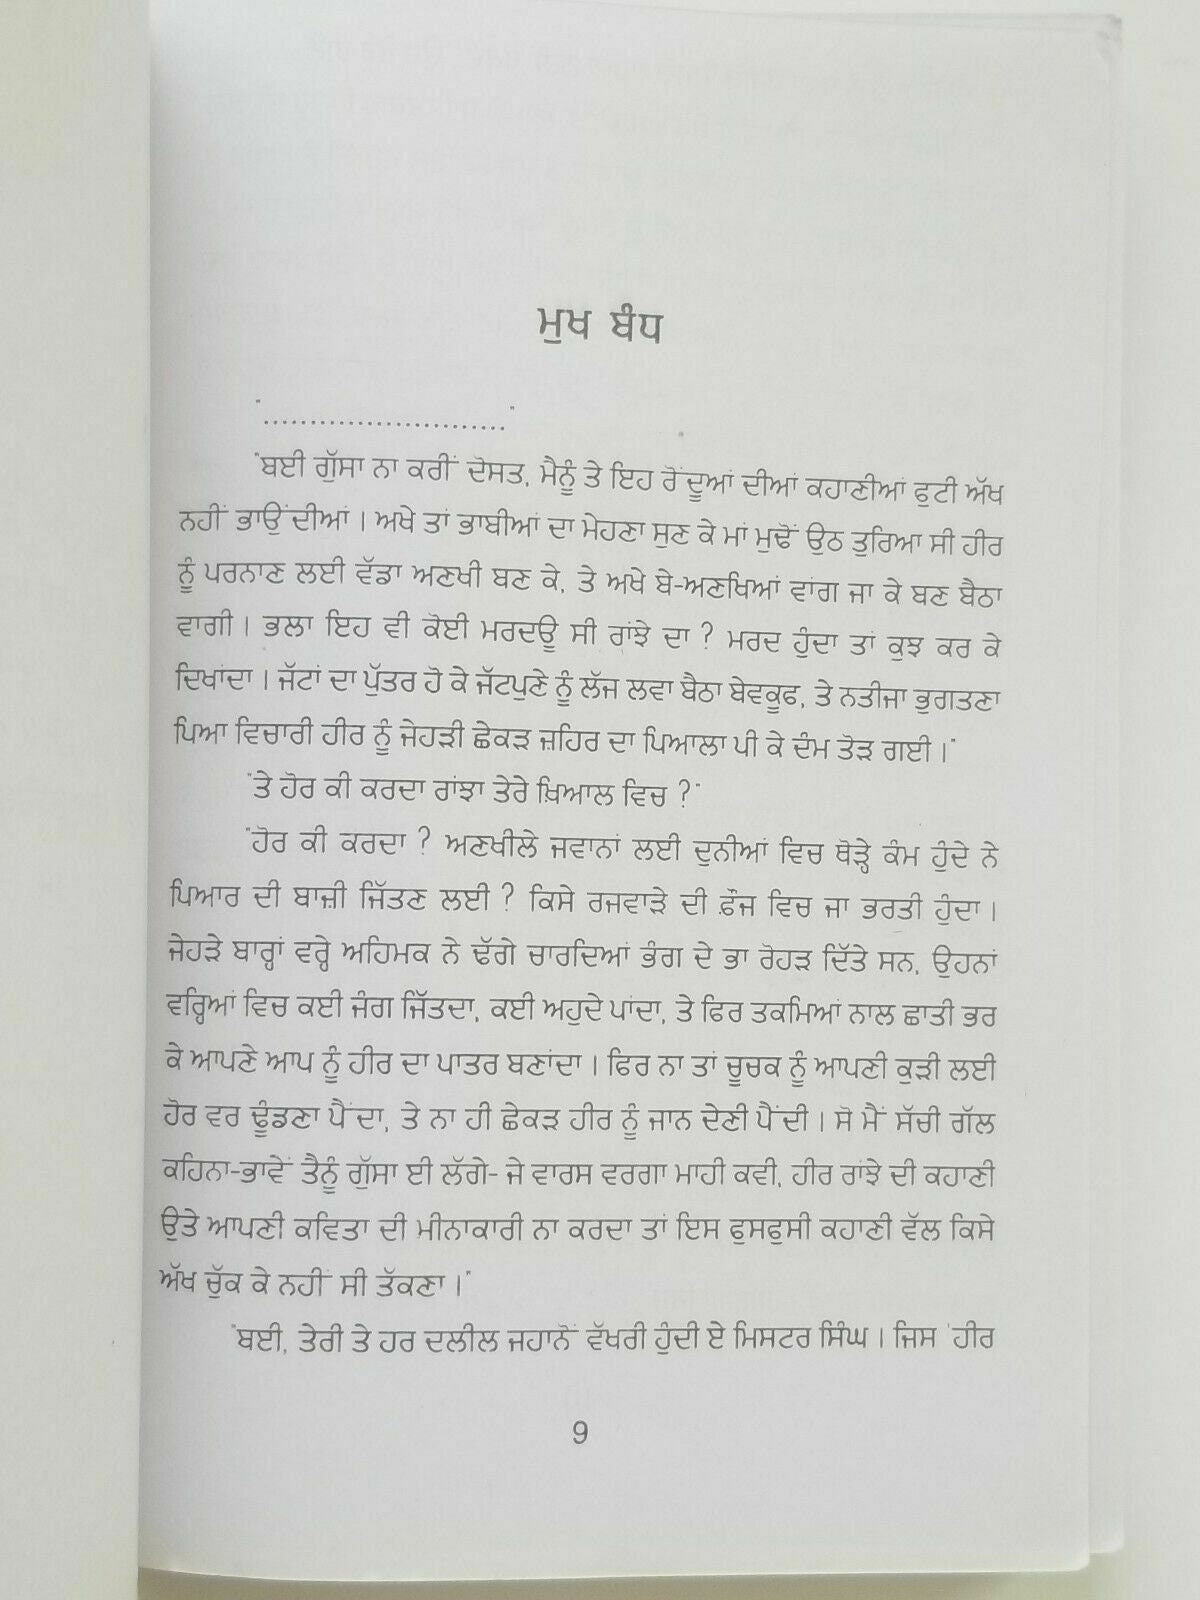 ਮੁਖ ਬੰਧ
".........................."
"ਬਈ ਗੁੱਸਾ ਨਾ ਕਰੀਂ ਦੋਸਤ, ਮੈਨੂੰ ਤੇ ਇਹ ਰੋਂਦੂਆਂ ਦੀਆਂ ਕਹਾਣੀਆਂ ਫੁਟੀ ਅੱਖ
ਨਹੀਂ ਭਾਉਂਦੀਆਂ। ਅਖੇ ਤਾਂ ਭਾਬੀਆਂ ਦਾ ਮੇਹਣਾ ਸੁਣ ਕੇ ਮਾਂ ਮੁਢੋਂ ਉਠ ਤੁਰਿਆ ਸੀ ਹੀਰ
ਨੂੰ ਪਰਨਾਣ ਲਈ ਵੱਡਾ ਅਣਖੀ ਬਣ ਕੇ, ਤੇ ਅਖੇ ਬੇ-ਅਣਖਿਆਂ ਵਾਂਗ ਜਾ ਕੇ ਬਣ ਬੈਠਾ
ਵਾਗੀ। ਭਲਾ ਇਹ ਵੀ ਕੋਈ ਮਰਦਊ ਸੀ ਰਾਂਝੇ ਦਾ ? ਮਰਦ ਹੁੰਦਾ ਤਾਂ ਕੁਝ ਕਰ ਕੇ
ਦਿਖਾਂਦਾ। ਜੱਟਾਂ ਦਾ ਪੁੱਤਰ ਹੋ ਕੇ ਜੱਟਪੁਣੇ ਨੂੰ ਲੱਜ ਲਵਾ ਬੈਠਾ ਬੇਵਕੂਫ, ਤੇ ਨਤੀਜਾ ਭੁਗਤਣਾ
ਪਿਆ ਵਿਚਾਰੀ ਹੀਰ ਨੂੰ ਜੇਹੜੀ ਛੇਕੜ ਜ਼ਹਿਰ ਦਾ ਪਿਆਲਾ ਪੀ ਕੇ ਦੰਮ ਤੋੜ ਗਈ।"
"ਤੇ ਹੋਰ ਕੀ ਕਰਦਾ ਰਾਂਝਾ ਤੇਰੇ ਖ਼ਿਆਲ ਵਿਚ ?"
"ਹੋਰ ਕੀ ਕਰਦਾ ? ਅਣਖੀਲੇ ਜਵਾਨਾਂ ਲਈ ਦੁਨੀਆਂ ਵਿਚ ਥੋੜ੍ਹੇ ਕੰਮ ਹੁੰਦੇ ਨੇ
ਪਿਆਰ ਦੀ ਬਾਜ਼ੀ ਜਿੱਤਣ ਲਈ ? ਕਿਸੇ ਰਜਵਾੜੇ ਦੀ ਫ਼ੌਜ ਵਿਚ ਜਾ ਭਰਤੀ ਹੁੰਦਾ।
ਜੇਹੜੇ ਬਾਰ੍ਹਾਂ ਵਰ੍ਹੇ ਅਹਿਮਕ ਨੇ ਢੱਗੇ ਚਾਰਦਿਆਂ ਭੰਗ ਦੇ ਭਾ ਰੋਹੜ ਦਿੱਤੇ ਸਨ, ਉਹਨਾਂ
ਵਰ੍ਹਿਆਂ ਵਿਚ ਕਈ ਜੰਗ ਜਿੱਤਦਾ, ਕਈ ਅਹੁਦੇ ਪਾਂਦਾ, ਤੇ ਫਿਰ ਤਕਮਿਆਂ ਨਾਲ ਛਾਤੀ ਭਰ
ਕੇ ਆਪਣੇ ਆਪ ਨੂੰ ਹੀਰ ਦਾ ਪਾਤਰ ਬਣਾਂਦਾ। ਫਿਰ ਨਾ ਤਾਂ ਚੂਚਕ ਨੂੰ ਆਪਣੀ ਕੁੜੀ ਲਈ
ਹੋਰ ਵਰ ਢੂੰਡਣਾ ਪੈਂਦਾ, ਤੇ ਨਾ ਹੀ ਛੇਕੜ ਹੀਰ ਨੂੰ ਜਾਨ ਦੇਣੀ ਪੈਂਦੀ। ਸੋ ਮੈਂ ਸੱਚੀ ਗੱਲ
ਕਹਿਨਾ-ਭਾਵੇਂ ਤੈਨੂੰ ਗੁੱਸਾ ਈ ਲੱਗੇ- ਜੇ ਵਾਰਸ ਵਰਗਾ ਮਾਹੀ ਕਵੀ, ਹੀਰ ਰਾਂਝੇ ਦੀ ਕਹਾਣੀ
ਉਤੇ ਆਪਣੀ ਕਵਿਤਾ ਦੀ ਮੀਨਾਕਾਰੀ ਨਾ ਕਰਦਾ ਤਾਂ ਇਸ ਫੁਸਫੁਸੀ ਕਹਾਣੀ ਵੱਲ ਕਿਸੇ
ਅੱਖ ਚੁੱਕ ਕੇ ਨਹੀਂ ਸੀ ਤੱਕਣਾ।"
"ਬਈ, ਤੇਰੀ ਤੇ ਹਰ ਦਲੀਲ ਜਹਾਨੋਂ ਵੱਖਰੀ ਹੁੰਦੀ ਏ ਮਿਸਟਰ ਸਿੰਘ। ਜਿਸ 'ਹੀਰ
9